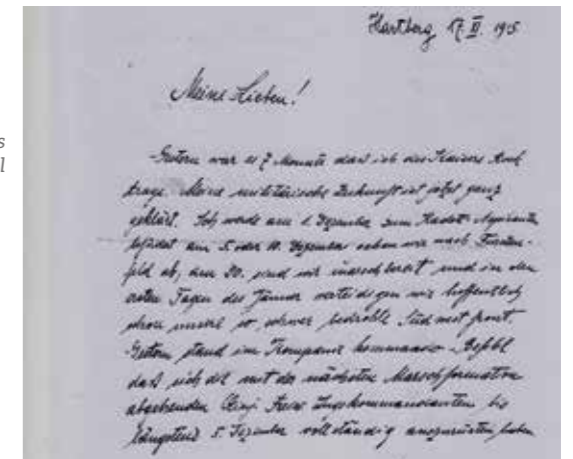 s
l
Hartberg 17. II. 1915
Meine Lieben!
Gestern war es 7 Monate dass ich des Kaisers Rock
trage. Meine militärische Zukunft ist jetzt ganz
geklärt. Ich werde am 1. Dezember zum Kadett-Aspiranten
befördert am 5. oder 10. Dezember gehen wir nach Fürsten-
feld ab, am 30. sind wir marschbereit und in den
ersten Tagen des Jänner verteidigen wir hoffentlich
schon unsere so schwer bedrohte Südwestfront.
Gestern stand im Kompanie kommando-Befehl
dass sich die mit der nächsten Marschformation
abgehenden Einj. Freiw. Zugskommandanten bis
längstens 5. Dezember vollständig auszurüsten haben